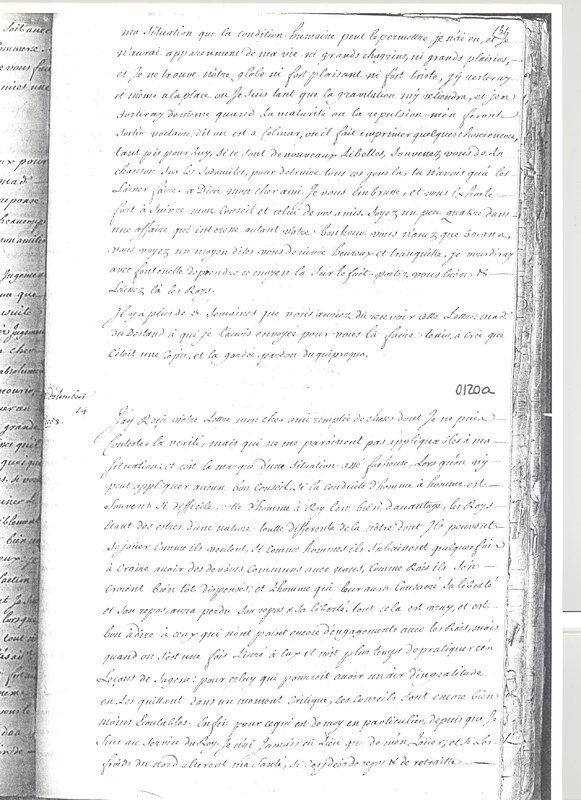 135
ma Situation que la condition humaine peut le permettre, je n'ai eu, et je
n'aurai apparemment de ma vie ni grands chagrins, ni grands plaisirs,
et Je ne trouve notre globe ni fort plaisant ni fort triste, j'y resteray
et même a la place ou Je suis tant que la gravitation m'y retiendra, et j'en
sortiray de même quand la maturité ou la repulsion m'en feront
sortir voltaire dit on est a Colmar, ou il fait imprimer quelques choses encore,
tant pis pour luy, si ce sont de nouveaux libelles, souvenez vous de la
chanson sur les Sodomites, pour detruire tous ces gens la, tu n'avois qu'a les
laisser faire. a Dieu mon cher ami Je vous embrasse, et vous Exhorte
fort a Suivre mon Conseil et celui de vos amis. Soyez un peu quaker dans
une affaire qui interesse autant votre bonheur vous n'avez que ans,
vous voyez un moyen dites vous de vivre heureux et tranquille, je vous diray
avec fontenelle de prendre ce moyen la Sur le fait. portez vous bien &
laissez là les Roys.
Il y a plus de Semaines que vous auriez du recevoir cette Lettre, mad.
du Deffand à qui je l'avois envoyée pour vous la faire tenir, à Crû que
C'étoit une Copie, et la gardée, pardon du quiproquo.
0120a
J'ay Reçû votre Lettre mon cher ami remplie de choses dont Je ne puis
Contester la verité, mais qui ne me paroissent pas appliquables à ma
Situation; et c'est la marque d'une Situation assé facheuse, Lors qu'on n'y
peut appliquer aucun bon Conseil. Si la conduite d'homme à homme est
Souvent Si difficile, celle d'homme à Roy l'est bien d'avantage, les Roys
Etant des estres d'une nature toutte differente de la nôtre dont Ils peuvent
se joüer Comme ils veulent, Si Comme hommes ils S'abaissent quelquefois
à Croire avoir des devoirs Communs avec nous, Comme Rois ils s'en
Croient bien tôt dispensés; et L'homme qui leur aura Consacré Sa liberté
et Son repos, aura perdu Son repos & Sa liberté. tout cela est vray, et est
bon a dire à ceux qui n'ont point encore d'engagements avec les Rois, mais
quand on s'est une fois Livré à Eux il n'est plus temps de pratiquer ces
Leçons de Sagesse; pour celuy qui pourroit avoir un air d'ingratitude
en Les quittant dans un moment Critique, Ces Conseils Sont encore bien
moins Ecoutables. Enfin pour ce qui est de moy en particulier, depuis que Je
Suis au Service du Roy, Je n'ai Jamais eu Lieu que de m'en Loüer, et Si les
froids du Nord alterent ma Santé, Si des idées de repos & de retraitte